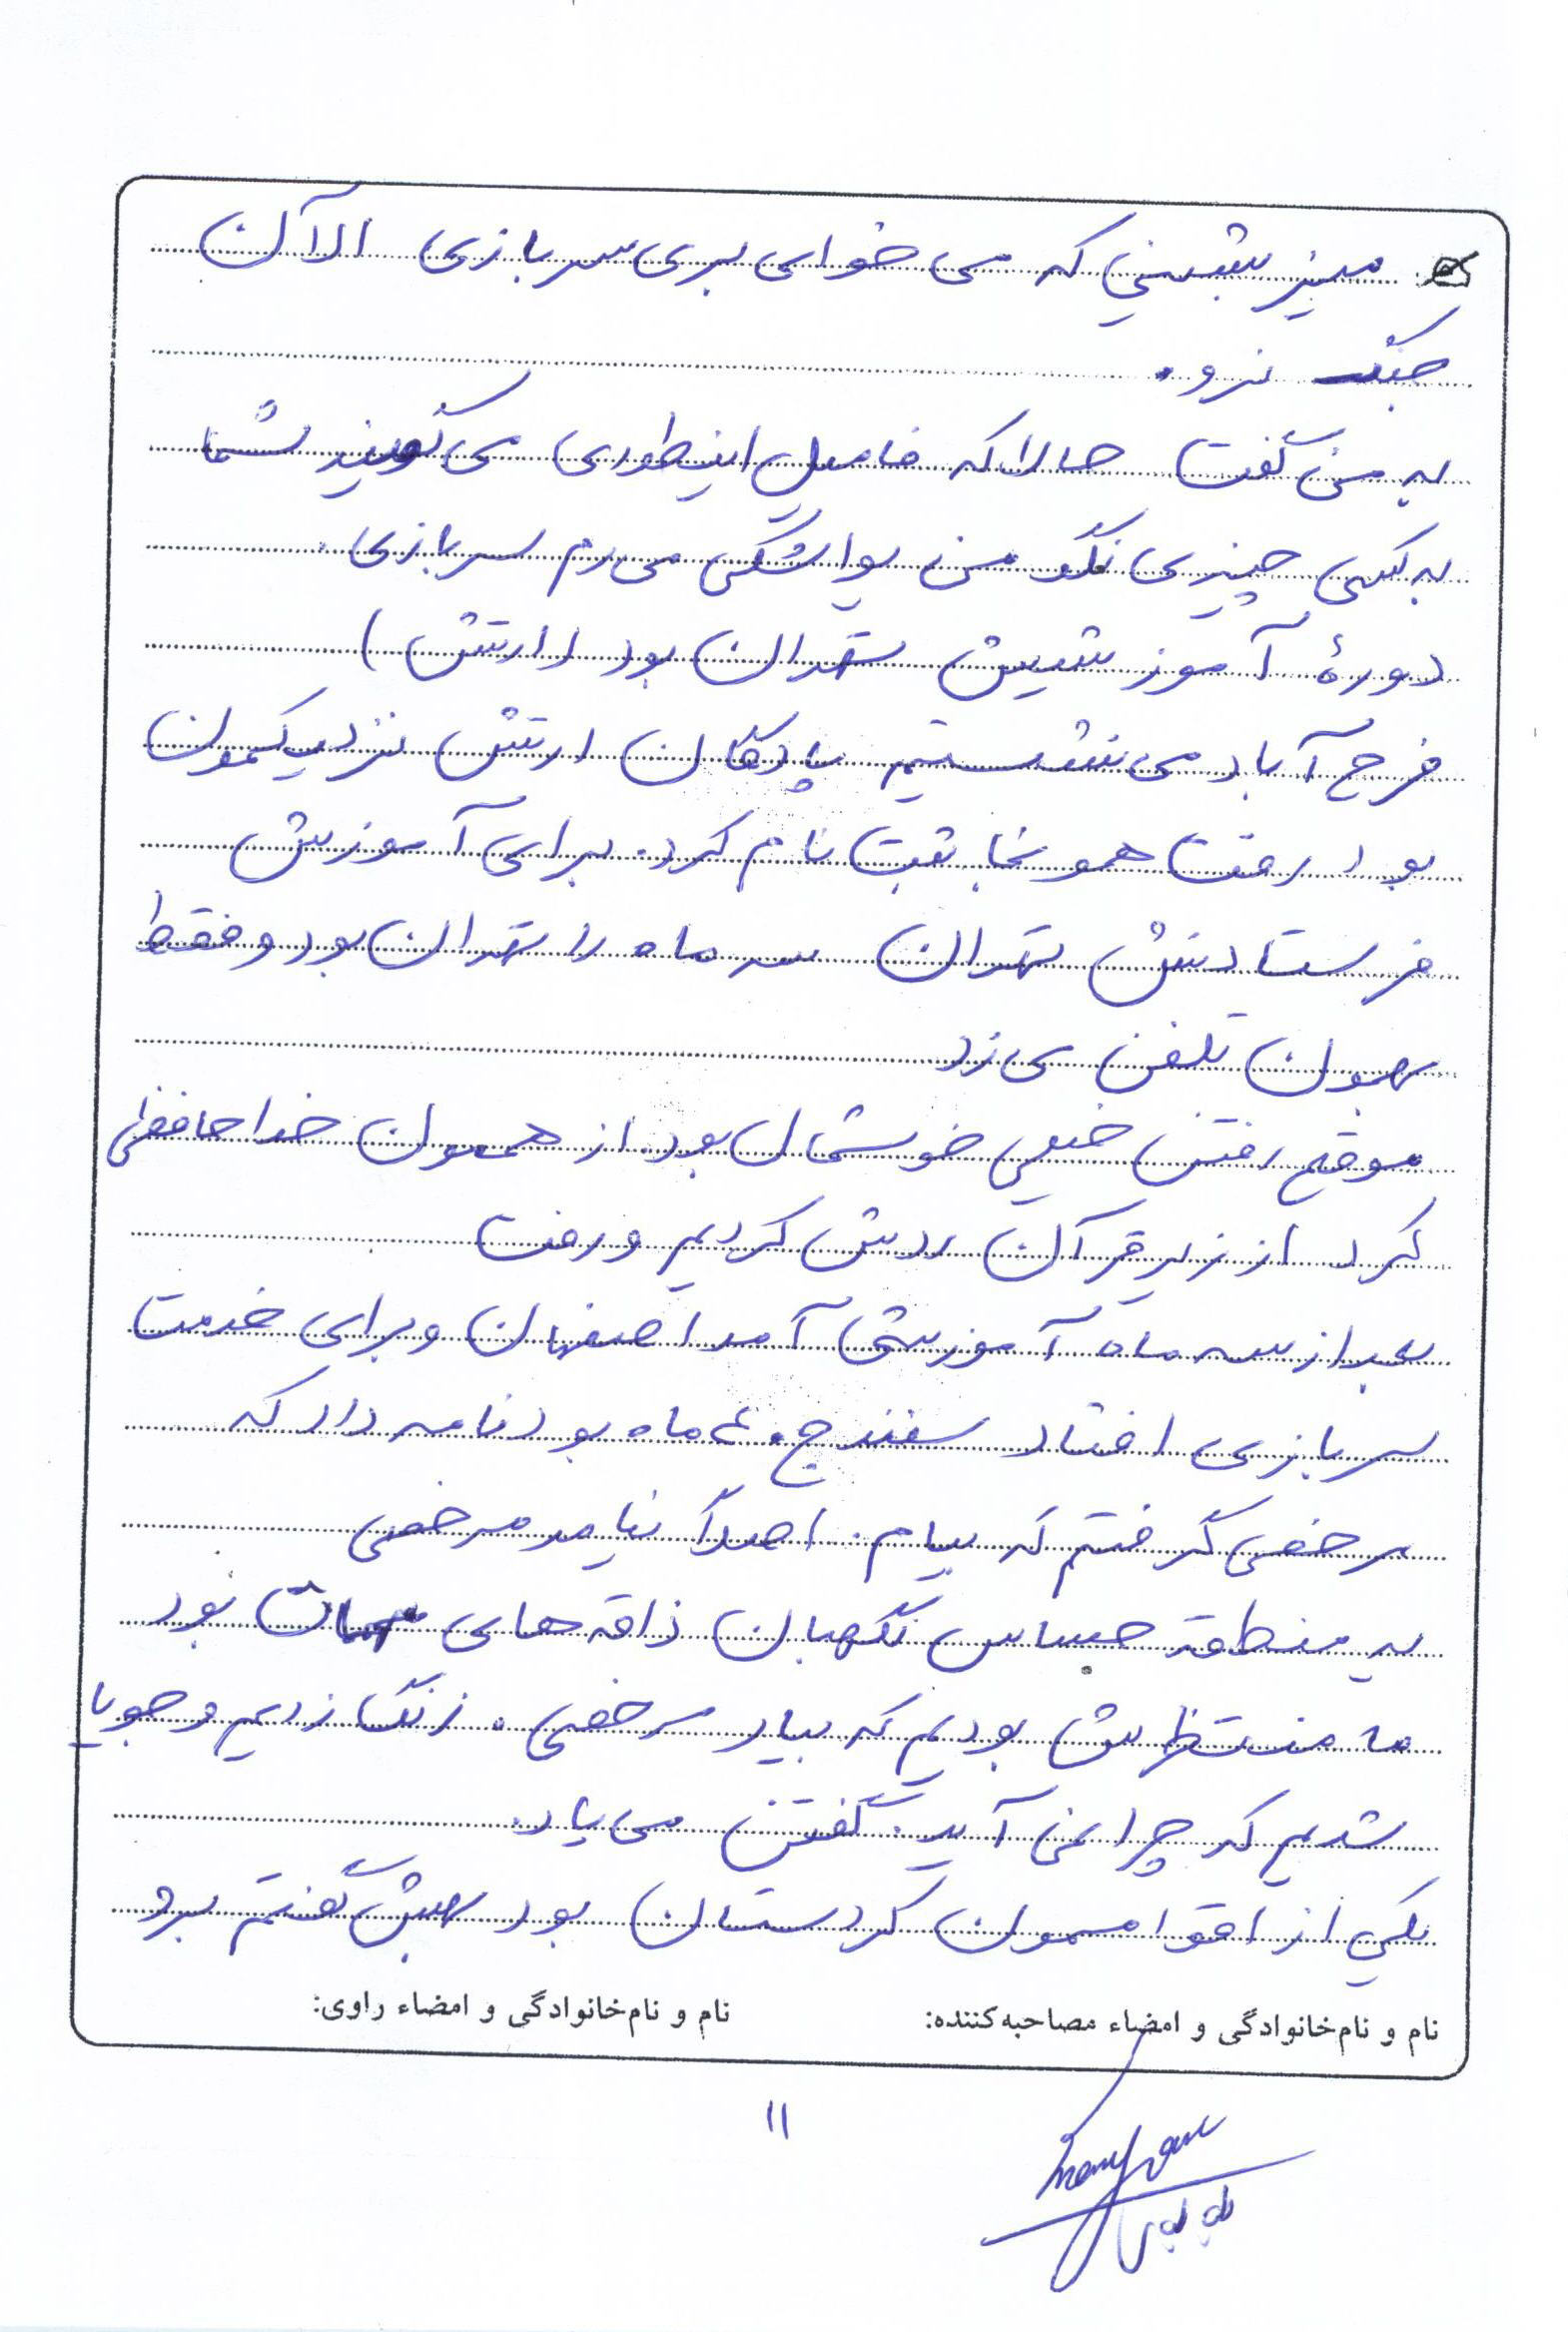 میز بشینی که می خوای بری سربازی الاآن
جنگ نرو.
به من گفت حالا که فامیل اینطوری می گویند شما
به کسی چیزی نگو من یواشکی می رم سربازی.
دورهٔ آموزشیش تهران بود (ارتش)
فرح آباد می نشستیم پادگان ارتش نزدیکمون
بود رفت همونجا ثبت نام کرد. برای آموزش
فرستادنش تهران سه ماه را تهران بود و فقط
بهمون تلفن می زد
موقع رفتن خیلی خوشحال بود. از همون خداحافظی
کرد از زیر قرآن ردش کردیم و رفت
بعد از سه ماه آموزشی آمد اصفهان و برای خدمت
سربازی افتاد سنندج. ۶ ماه بود نامه داد که
مرخصی گرفتم که بیام. اصلاً نیامد مرخصی
یه منطقه حساس نگهبان زاقه های مهمات بود
ما منتظرش بودیم که بیاد مرخصی. زنگ زدیم و جویا
شدیم که چرا نمی آید. گفتن می یاد.
یکی از اقوامـمون کردستان بود بهش گفتم برو
نام و نام‌خانوادگی و امضاء مصاحبه‌کننده: نام و نام‌خانوادگی و امضاء راوی:
۱۱